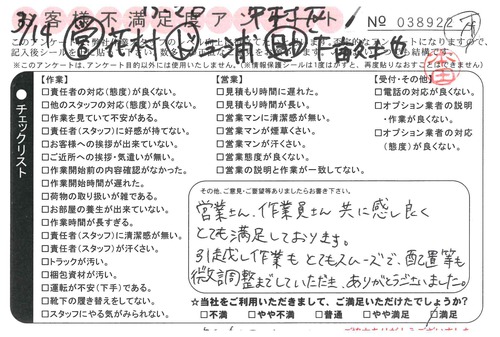 お客様不満足度アンケート
No 038922
3/14
※このアンケートは、アンケート目的以外には使用いたしません。(※情報保護シールは1度はがすと、再度貼りなおすことはできません)
チェックリスト
【作業】
□責任者の対応(態度)が良くない。
□他のスタッフの対応(態度)が良くない。
□作業を見ていて不安がある。
□責任者(スタッフ)に好感が持てない。
□お客様への挨拶が出来ていない。
□ご近所への挨拶・気遣いが無い。
□作業開始前の内容確認がなかった。
□作業開始時間が遅れた。
□荷物の取り扱いが雑である。
□お部屋の養生が出来ていない。
□作業時間が長すぎる。
□責任者(スタッフ)に清潔感が無い。
□責任者(スタッフ)が汗くさい。
□トラックが汚い。
□梱包資材が汚い。
□運転が不安(下手)である。
□靴下の履き替えをしてない。
□スタッフにやる気がみられない。
【営業】
□見積もり時間に遅れた。
□見積もり時間が長い。
□営業マンに清潔感が無い。
□営業マンが煙草くさい。
□営業マンが汗くさい。
□営業態度が良くない。
□営業の説明と作業が一致してない。
【受付・その他】
□電話の対応が良くない。
□オプション業者の説明
・作業が良くない。
□オプション業者の対応
(態度)が良くない。
その他、ご意見・ご要望等ありましたらお書き下さい。
営業さん、作業員さん 共に感じ良く
とても満足しております。
引越し作業も とてもスムーズで、配置等も
微調整までしていただき、ありがとうございました。
☆当社をご利用いただきまして、ご満足いただけたでしょうか?
□不満 □やや不満 □普通 □やや満足 □満足